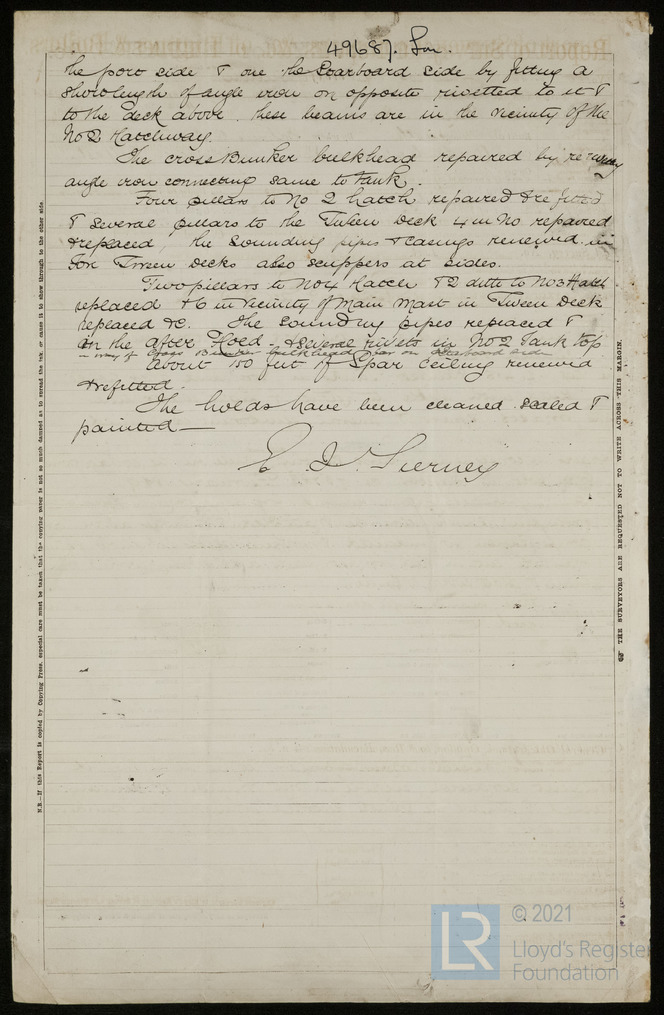 49687. Lon.
the port side & one the Starboard side by fitting a
short length of angle iron on opposite rivetted to it &
to the deck above. these beams are in the vicinity of the
No 2 Hatchway.
The cross Bunker bulkhead repaired by renewing
angle iron connecting same to tank.
Four pillars to No 2 hatch repaired & refitted
& several pillars to the Tween Deck 4 in No repaired
& replaced, the sounding pipes & casings renewed in
For Tween Decks also scuppers at sides.
Two pillars to No 4 Hatch & 2 ditto to No 3 Hatch
replaced & 6 in vicinity of Main Mast in Tween Deck
replaced &c. The sounding pipes replaced &
in the after Hold & several rivets in No 2 Tank top
in way of Cross Bunker bulkhead on Starboard side
About 150 feet of Spar Ceiling renewed
& refitted.
The holds have been cleaned scaled &
painted —
E. J. Tierney
N.B.—If this Report is copied by Copying Press, especial care must be taken that the copying water is not so much damped as to spread the ink, or cause it to show through to the other side
THE SURVEYORS ARE REQUESTED NOT TO WRITE ACROSS THIS MARGIN.
LR
© 2021
Lloyd's Register
Foundation